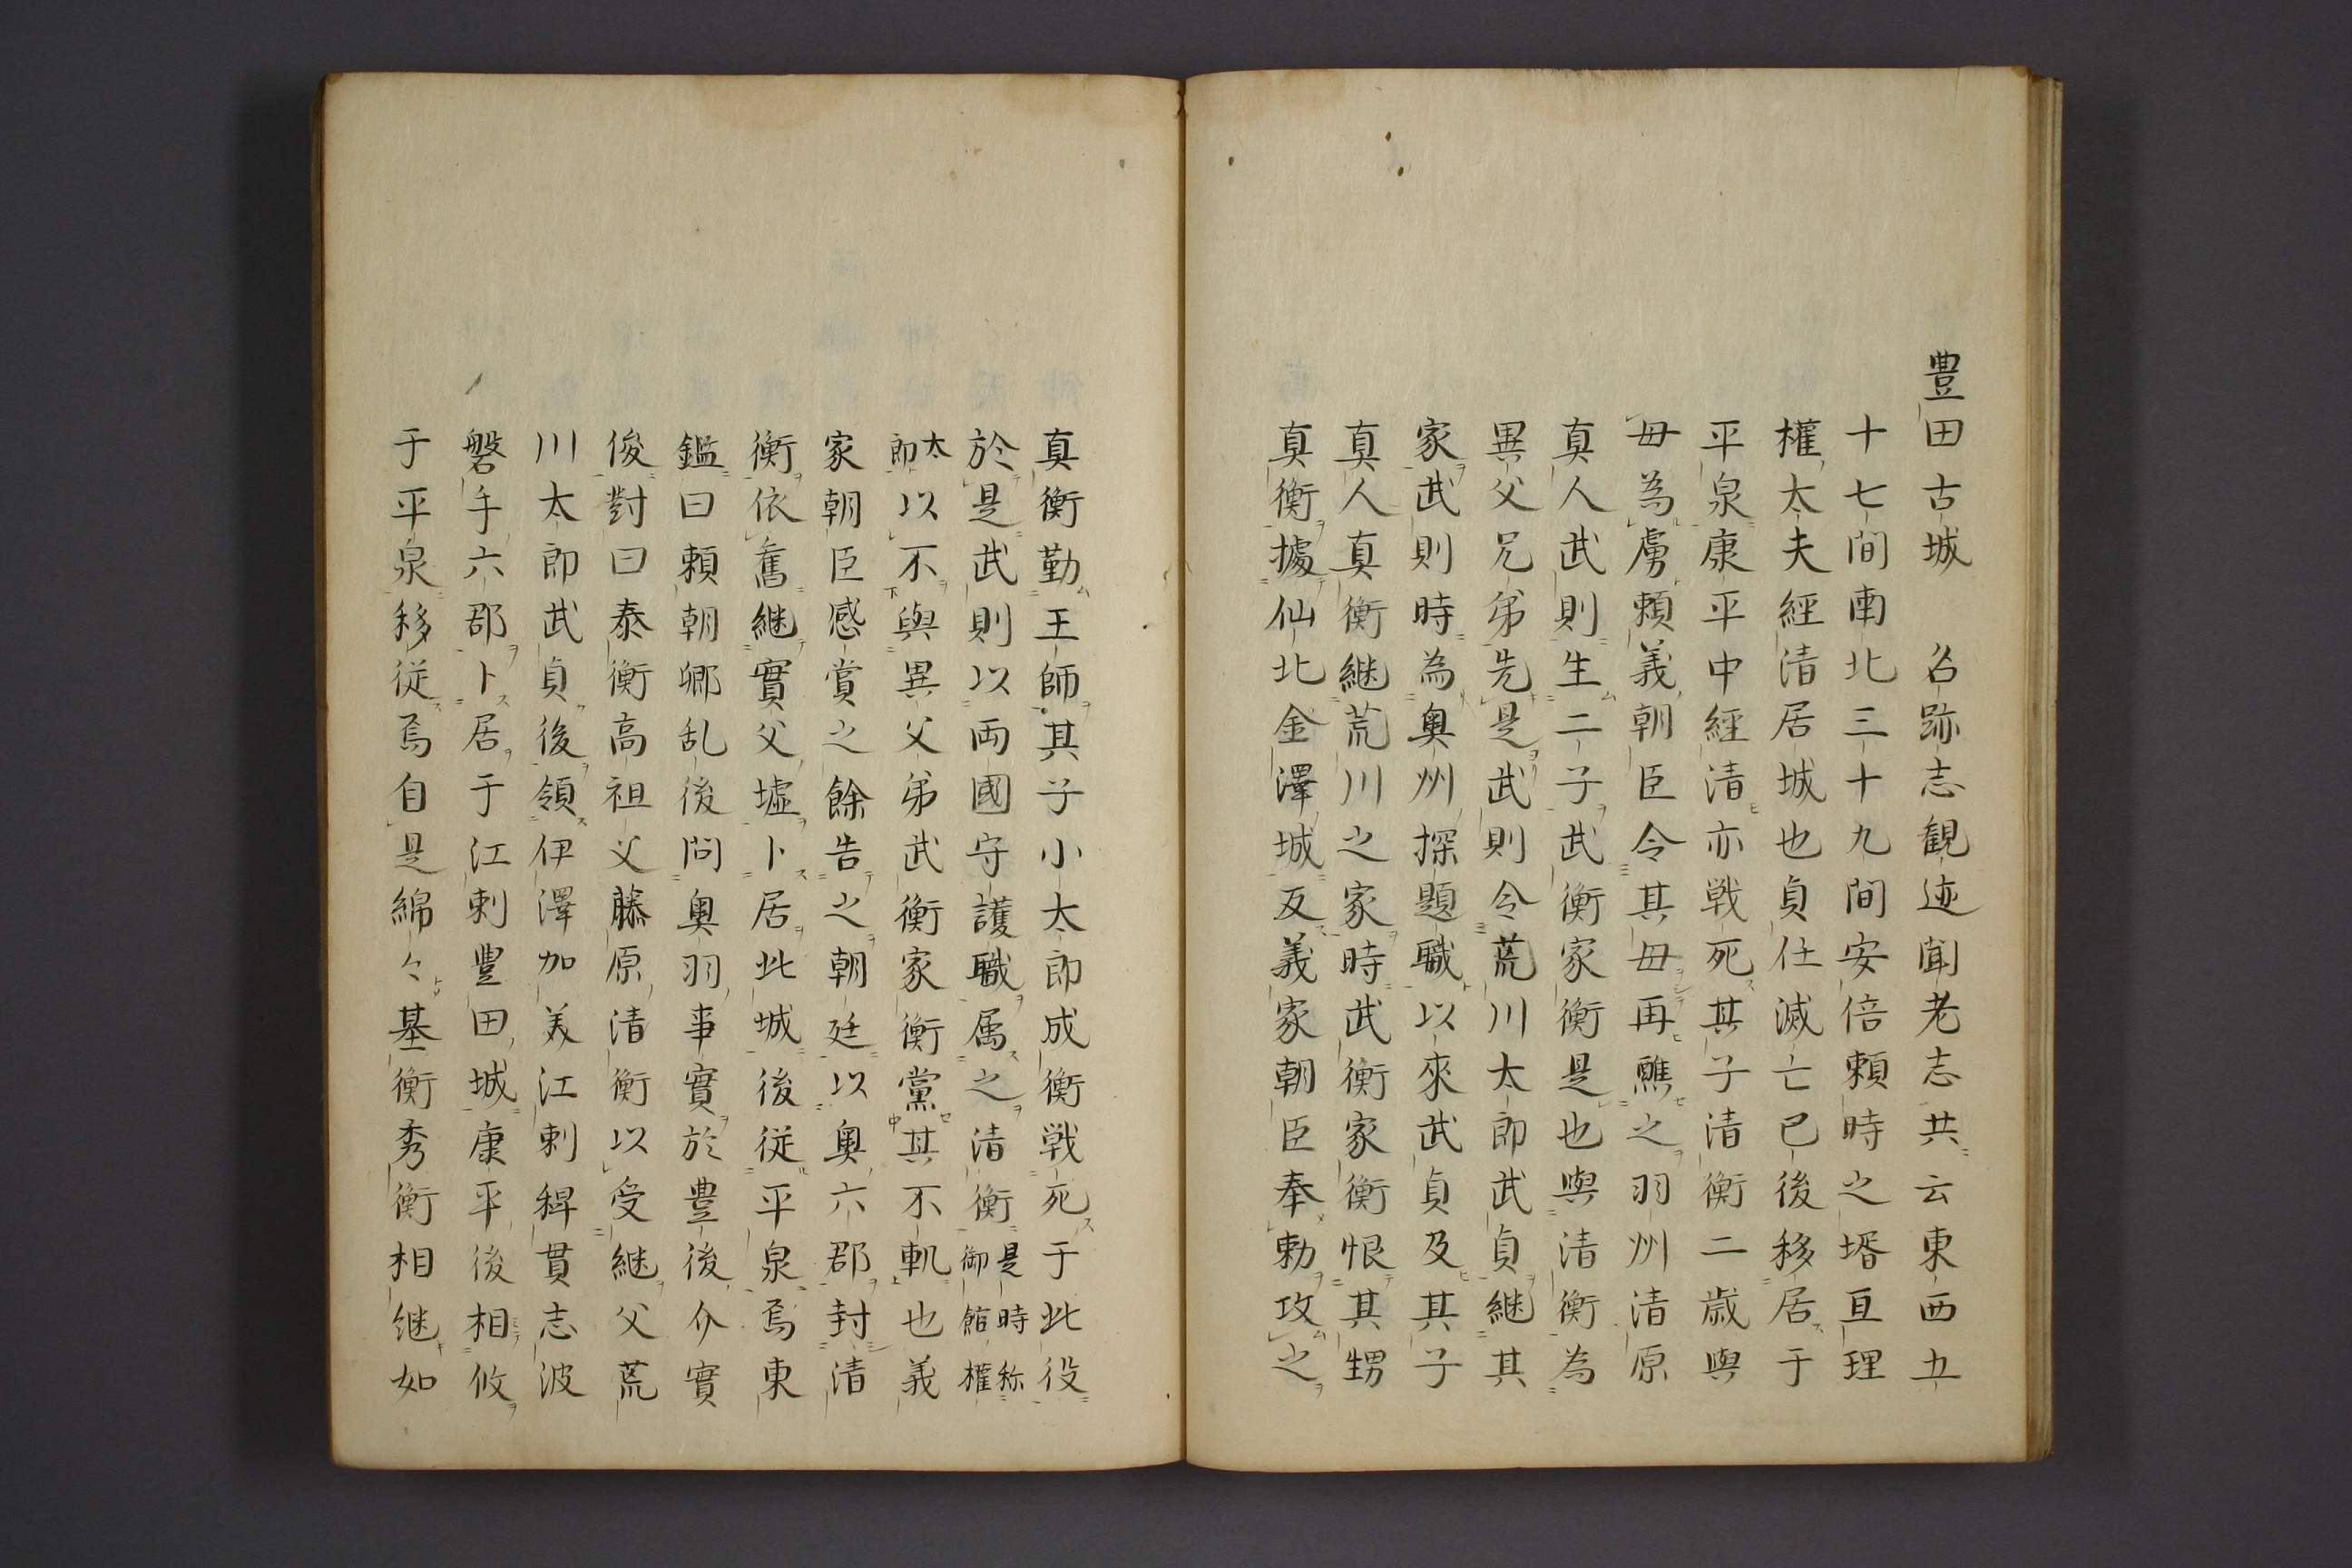 豊田古城　名跡志観迹聞老志共云東西五
十七間南北三十九間安倍頼時之壻亘理
權太夫經清居城也貞任滅亡已後移居于
平泉康平中經清亦戦死其子清衡二歳與
毋為虜頼義朝臣令其毋再醮之羽州清原
真人武則生二子武衡家衡是也與清衡為
異父兄弟先是武則令荒川太郎武貞継其
家武則時為奥州探題職以來武貞及其子
真人真衡継荒川之家時武衡家衡恨其甥
真衡據仙北金澤城反義家朝臣奉勅攻之
真衡勤王師其子小太郎成衡戦死于此役
於是武則以両國守護職属之清衡是時称御館權
太郎以不與異父弟武衡家衡黨其不軌也義
家朝臣感賞之餘告之朝廷以奥六郡封清
衡依舊継實父墟卜居此城後従平泉焉東
鑑曰頼朝卿乱後問奥羽事實於豊後介實
俊對曰泰衡高祖父藤原清衡以受継父荒
川太郎武貞後領伊澤加美江刺稗貫志波
磐手六郡卜居于江刺豊田城康平後相攸
于平泉移従焉自是綿々基衡秀衡相継如